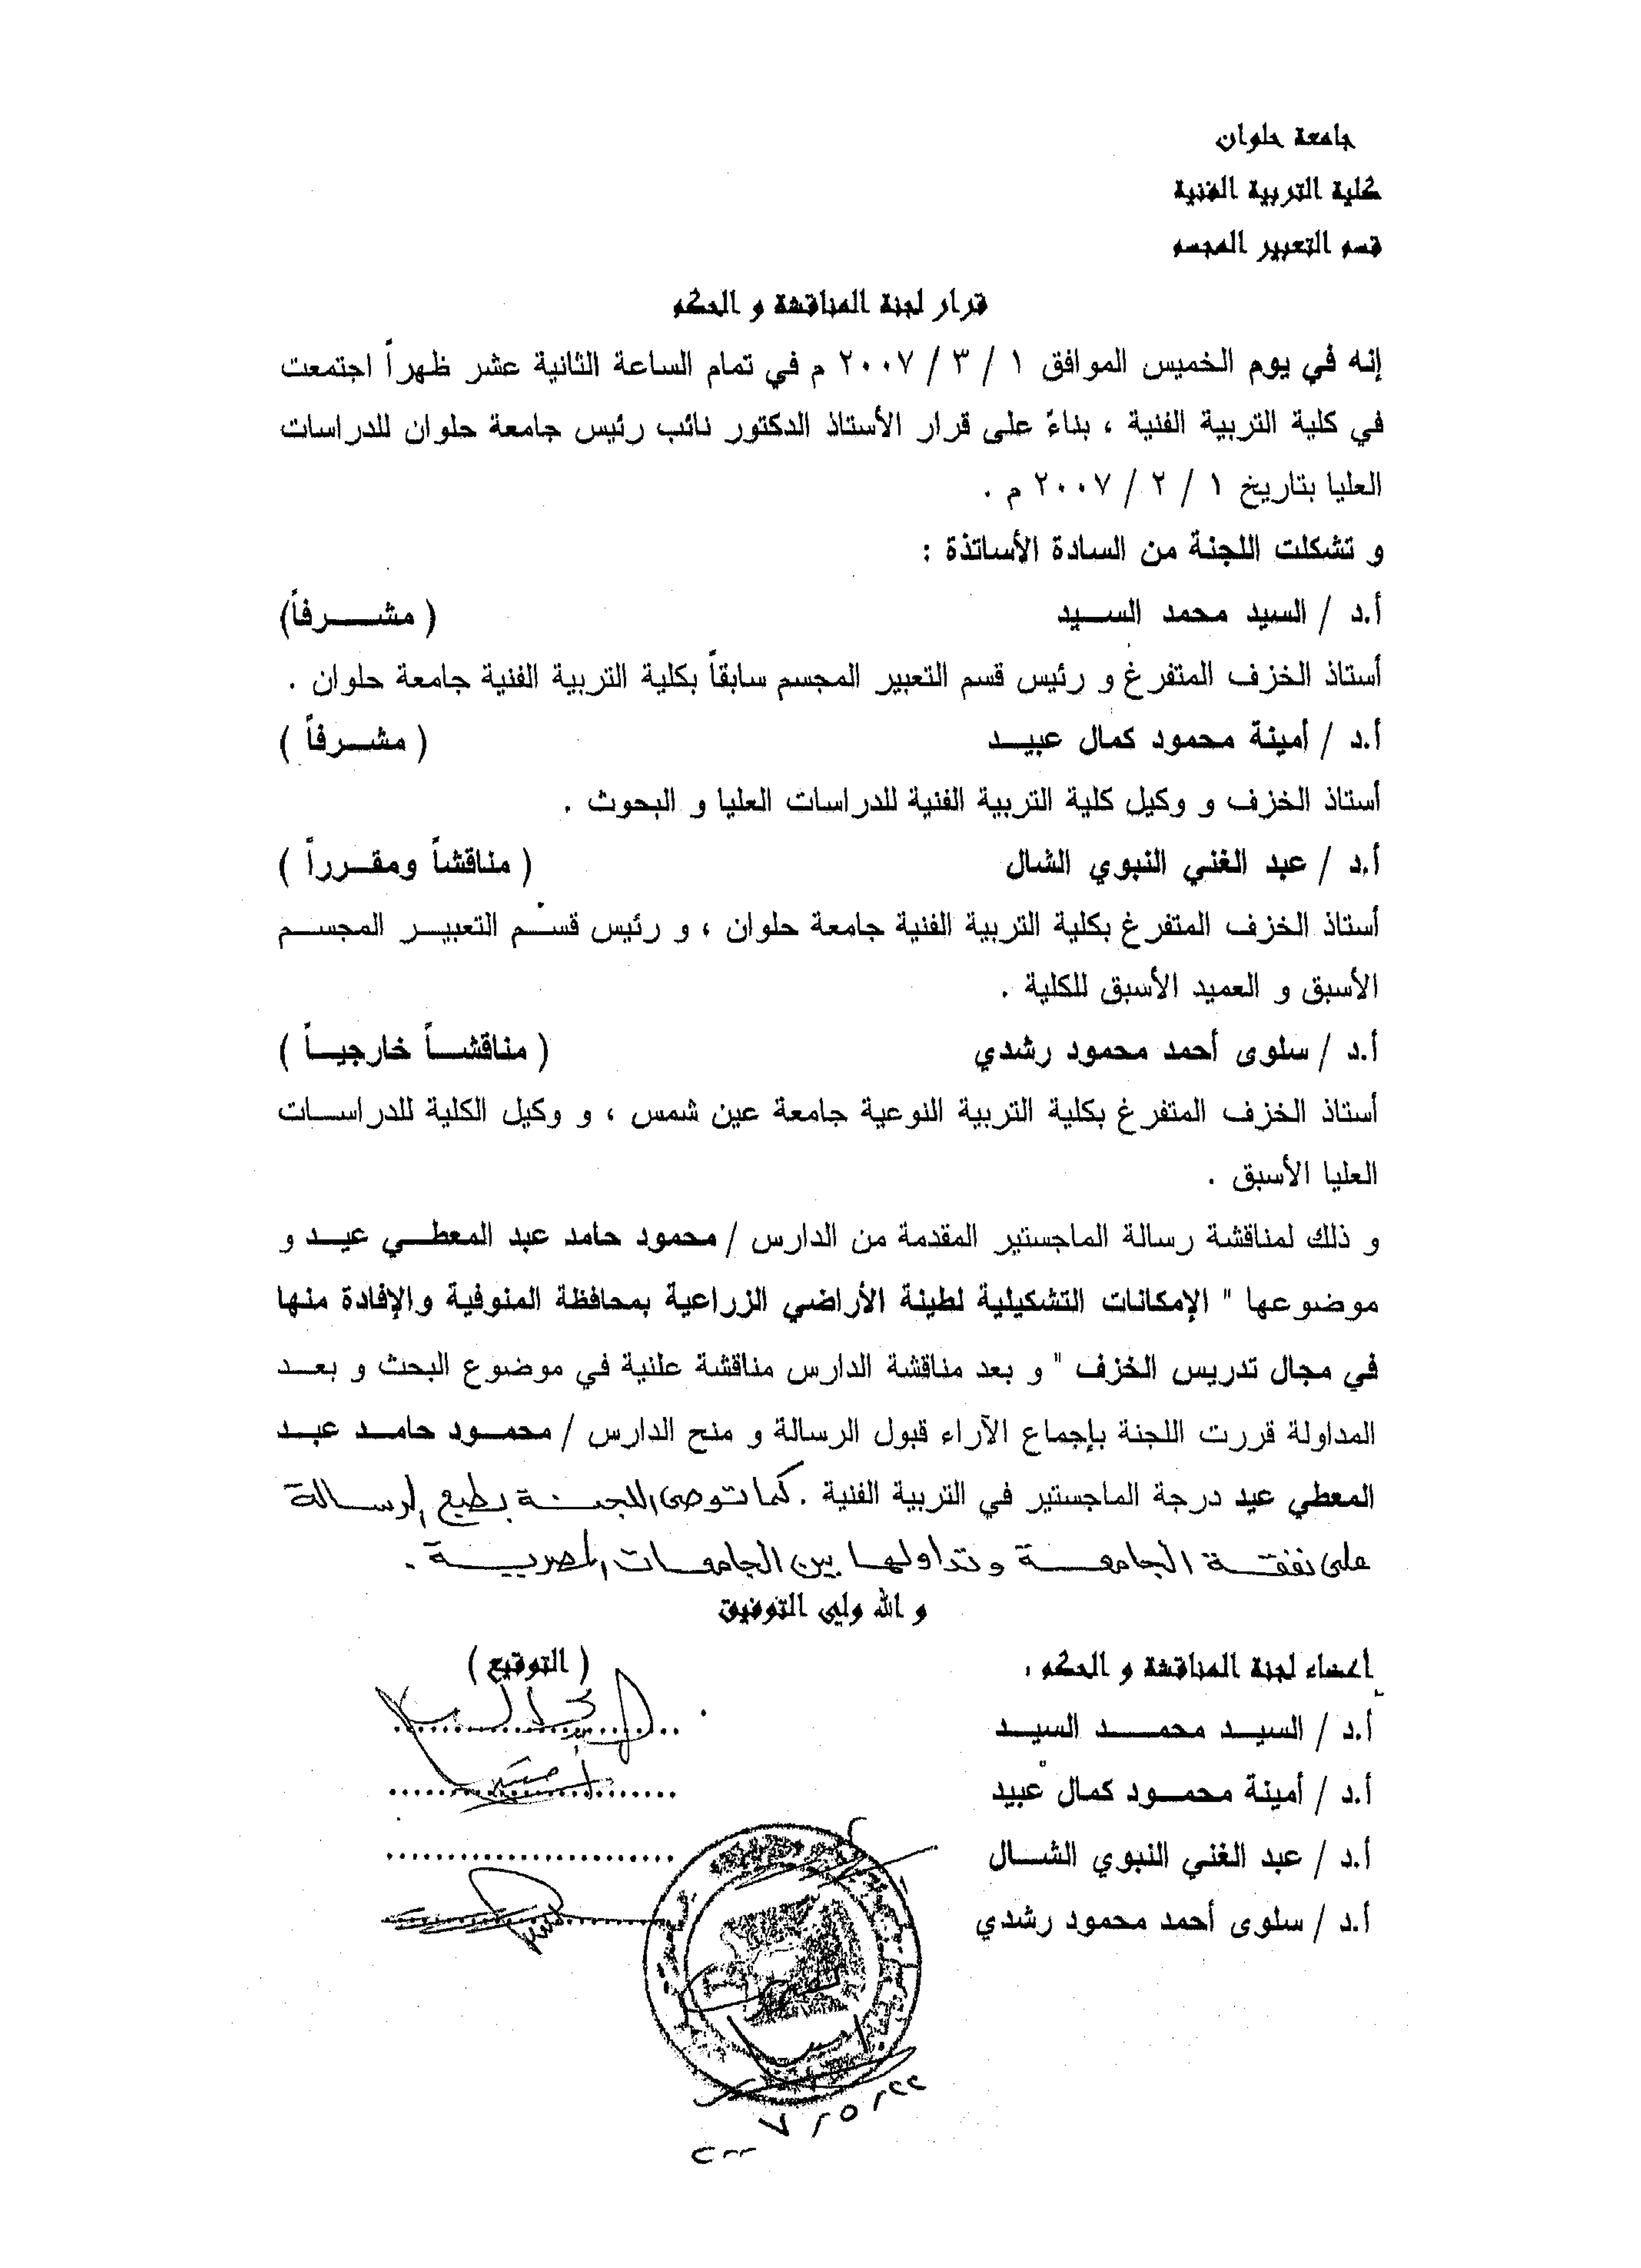 جامعة حلوان
كلية التربية الفنية
قسم التعبير المجسم
قرار لجنة المناقشة و الحكم
إنه في يوم الخميس الموافق ١ / ٣ / ٢٠٠٧ م في تمام الساعة الثانية عشر ظهراً اجتمعت
في كلية التربية الفنية ، بناءً على قرار الأستاذ الدكتور نائب رئيس جامعة حلوان للدراسات
العليا بتاريخ ١ / ٢ / ٢٠٠٧ م .
و تشكلت اللجنة من السادة الأساتذة :
أ.د / السيد محمد السيد ( مشرفاً)
أستاذ الخزف المتفرغ و رئيس قسم التعبير المجسم سابقاً بكلية التربية الفنية جامعة حلوان .
أ.د / أمينة محمود كمال عبيد ( مشرفاً )
أستاذ الخزف و وكيل كلية التربية الفنية للدراسات العليا و البحوث .
أ.د / عبد الغني النبوي الشال ( مناقشاً ومقرراً )
أستاذ الخزف المتفرغ بكلية التربية الفنية جامعة حلوان ، و رئيس قسم التعبير المجسم
الأسبق و العميد الأسبق للكلية .
أ.د / سلوى أحمد محمود رشدي ( مناقشاً خارجياً )
أستاذ الخزف المتفرغ بكلية التربية النوعية جامعة عين شمس ، و وكيل الكلية للدراسات
العليا الأسبق .
و ذلك لمناقشة رسالة الماجستير المقدمة من الدارس / محمود حامد عبد المعطي عيد و
موضوعها " الإمكانات التشكيلية لطينة الأراضي الزراعية بمحافظة المنوفية والإفادة منها
في مجال تدريس الخزف " و بعد مناقشة الدارس مناقشة علنية في موضوع البحث و بعد
المداولة قررت اللجنة بإجماع الآراء قبول الرسالة و منح الدارس / محمود حامد عبد
المعطي عيد درجة الماجستير في التربية الفنية . كما توصى اللجنة بطبع الرسالة
على نفقة الجامعة وتداولها بين الجامعات المصرية .
و الله ولي التوفيق
أعضاء لجنة المناقشة و الحكم : ( التوقيع )
أ.د / السيد محمد السيد
أ.د / أمينة محمود كمال عبيد
أ.د / عبد الغني النبوي الشال
أ.د / سلوى أحمد محمود رشدي